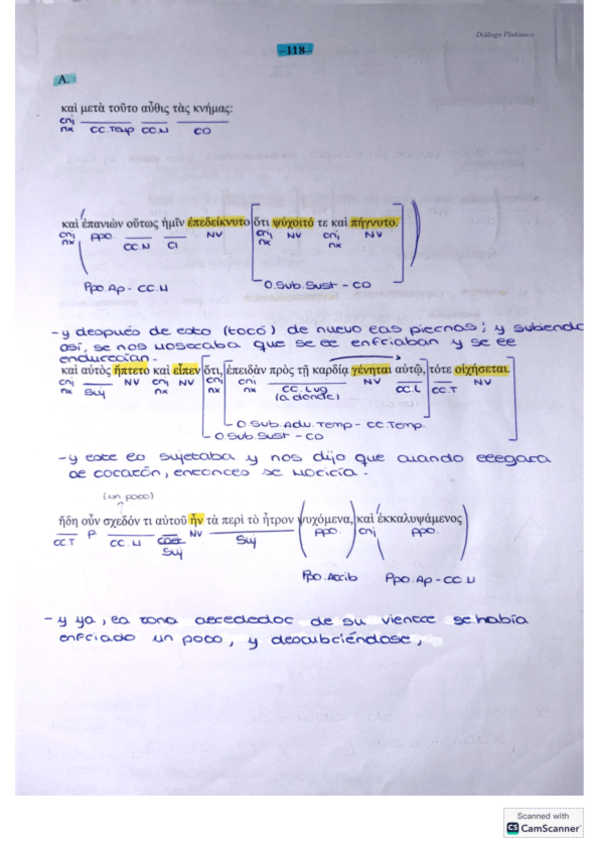 Diálogo Platónico
-118-
A.
καὶ μετὰ τοῦτο αὖθις τὰς κνήμας:
cnj nx CC.Temp CC.M CO
καὶ ἐπανιὼν οὕτως ἡμῖν ἐπεδείκνυτο ὅτι ψύχοιτό τε καὶ πήγνυτο.
cnj nx ppo. CC.M CI NV cnj nx NV cnj nx NV
Ppo.Ap - CC.M O.Sub.Sust - CO
- y después de esto (tocó) de nuevo las piernas; y subiendo
así, se nos mostraba que se le enfriaban y se le
endurecían.
καὶ αὐτὸς ἥπτετο καὶ εἶπεν ὅτι, ἐπειδὰν πρὸς τῇ καρδίᾳ γένηται αὐτῷ, τότε οἰχήσεται.
cnj nx Suj NV cnj nx NV cnj nx cnj nx CC.Lug (a donde) NV CC.L CC.T NV
O Sub.Adv.Temp - CC.Temp.
O.Sub.Sust - CO
- y este lo sujetaba y nos dijo que cuando llegara
al corazón, entonces se moriría.
(un poco)
ἤδη οὖν σχεδόν τι αὐτοῦ ἦν τὰ περὶ τὸ ἦτρον ψυχόμενα, καὶ ἐκκαλυψάμενος
CCT P CC.M Suj NV Suj ppo. cnj ppo.
Ppo.Atrib Ppo.Ap - CC.M
- y ya, la zona alrededor de su vientre se había
enfriado un poco, y descubriéndose,
Scanned with
CS CamScanner